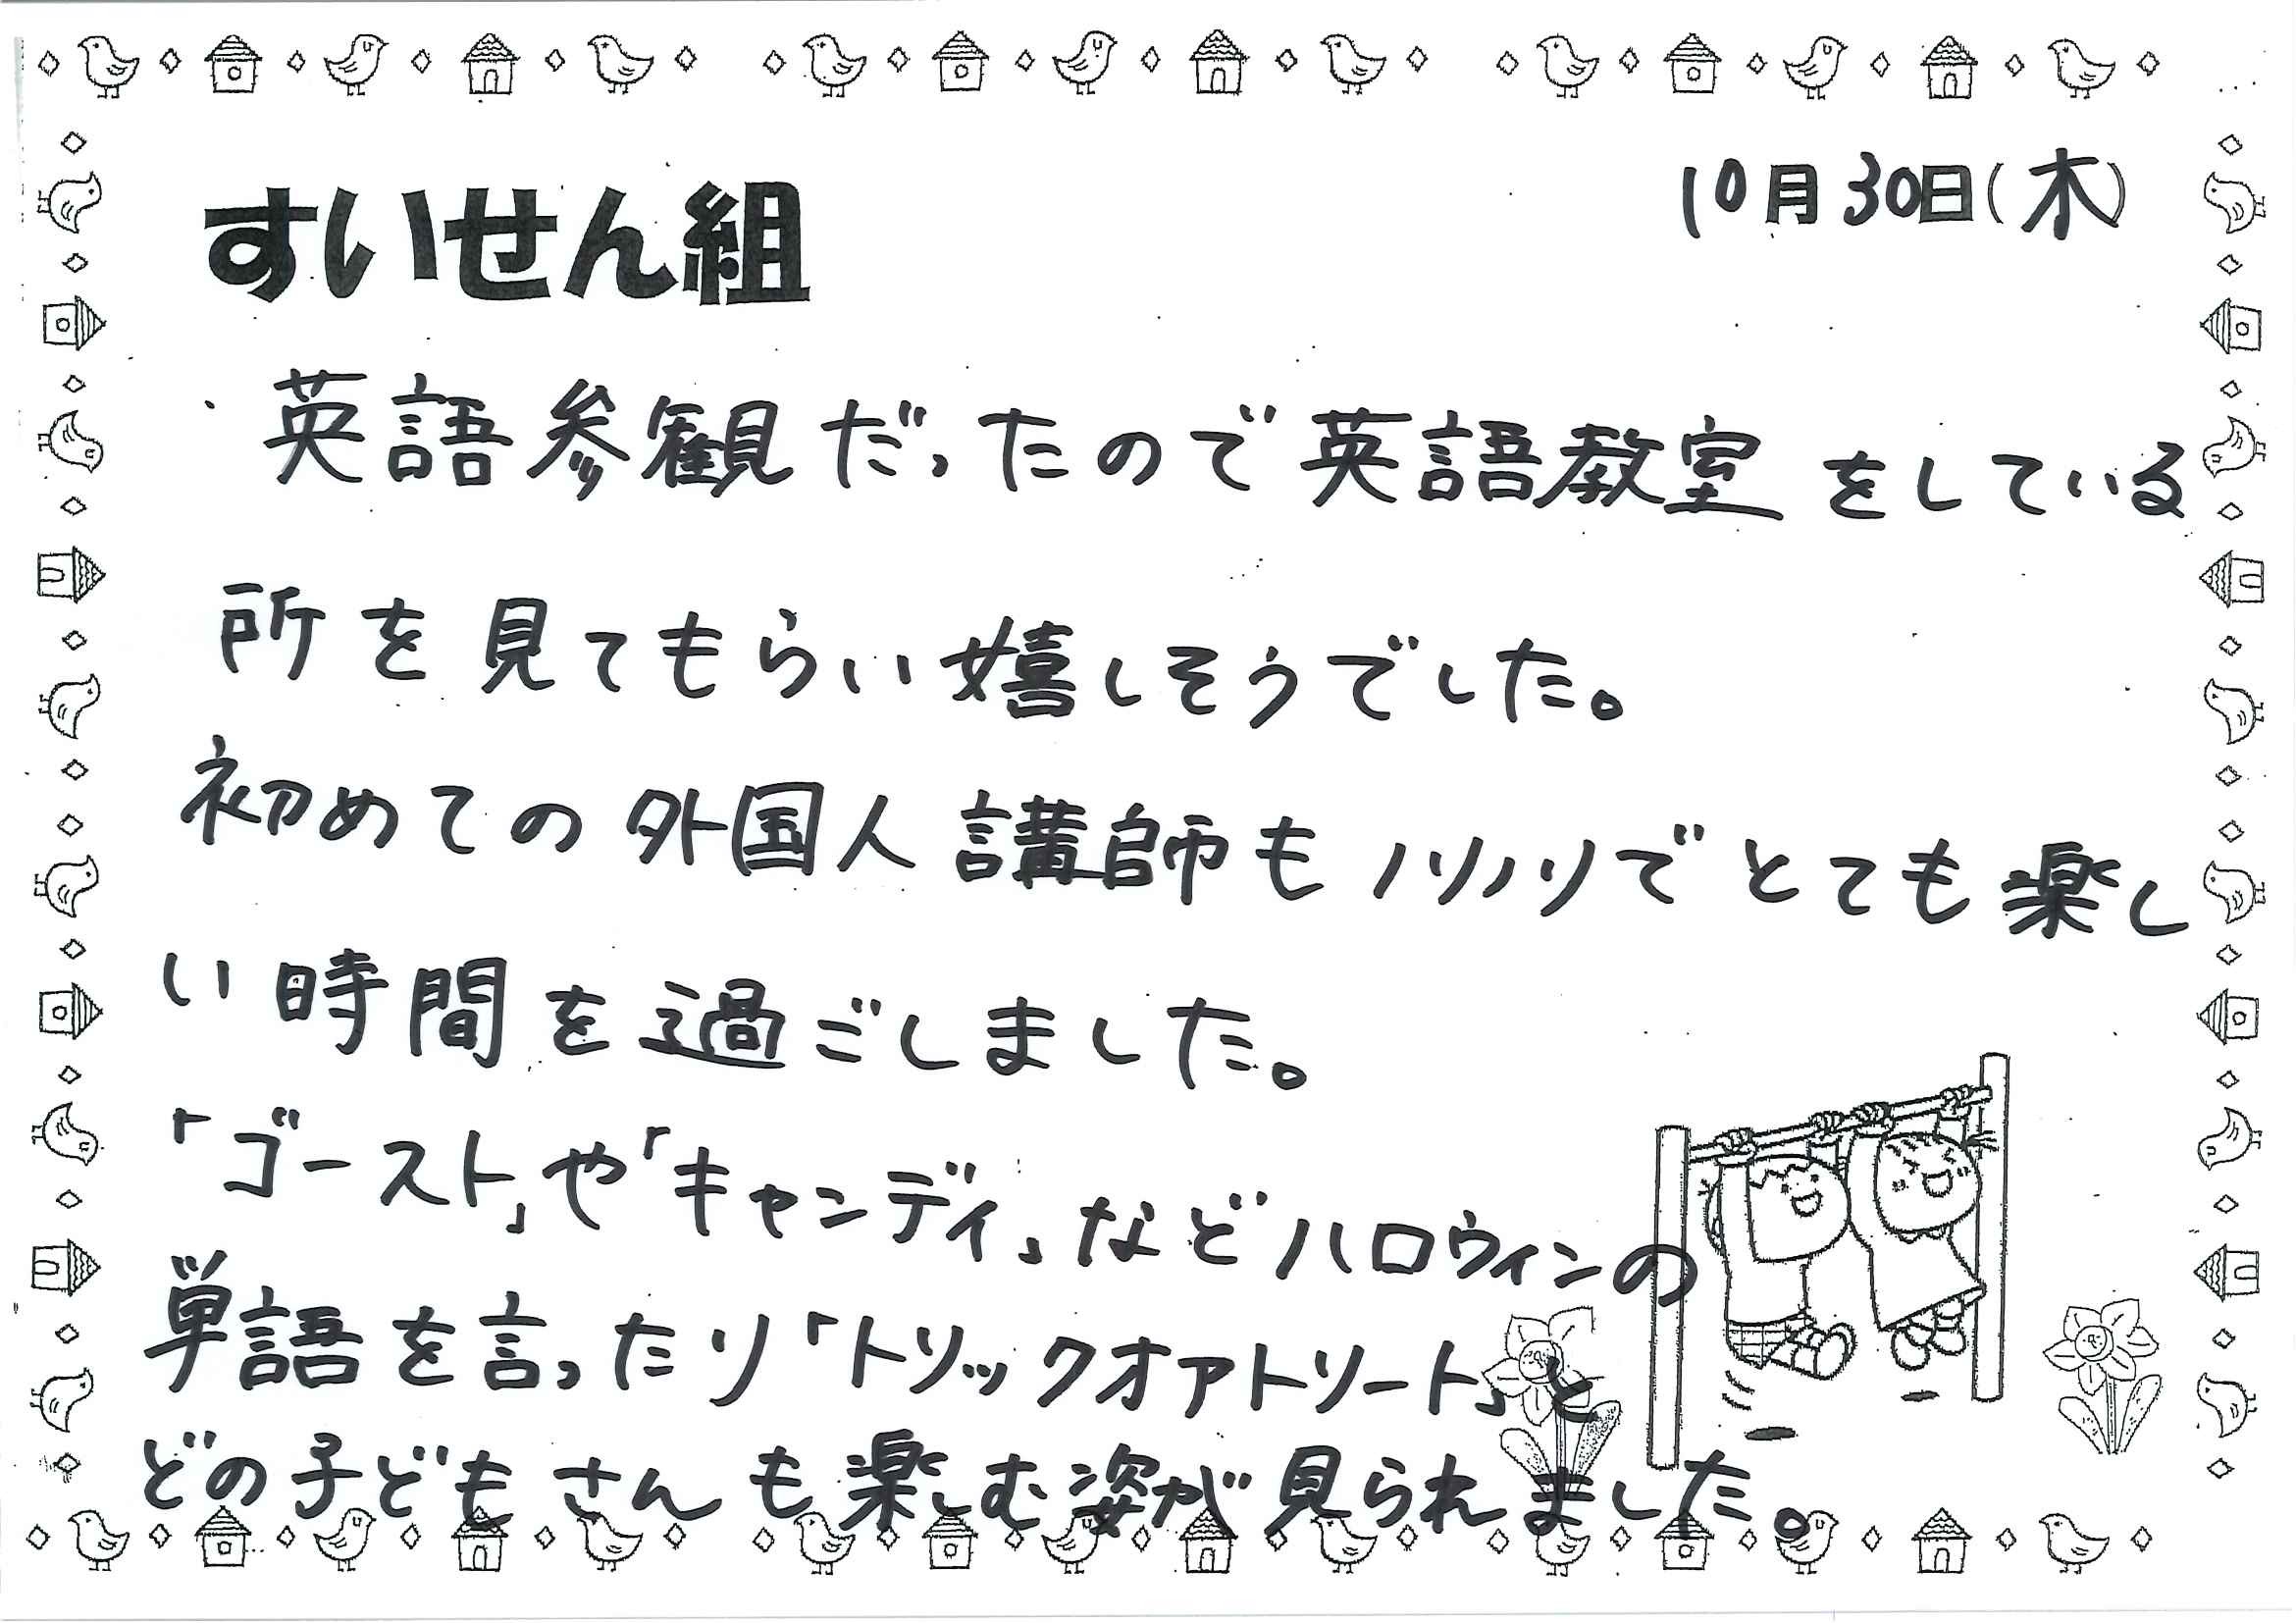 10月30日(木)
すいせん組
英語参観だったので英語教室をしている
所を見てもらい嬉しそうでした。
初めての外国人講師もノリノリでとても楽し
い時間を過ごしました。
「ゴースト」や「キャンディ」などハロウィンの
単語を言ったり「トリックオアトリート」と
どの子どもさんも楽しむ姿が見られました。